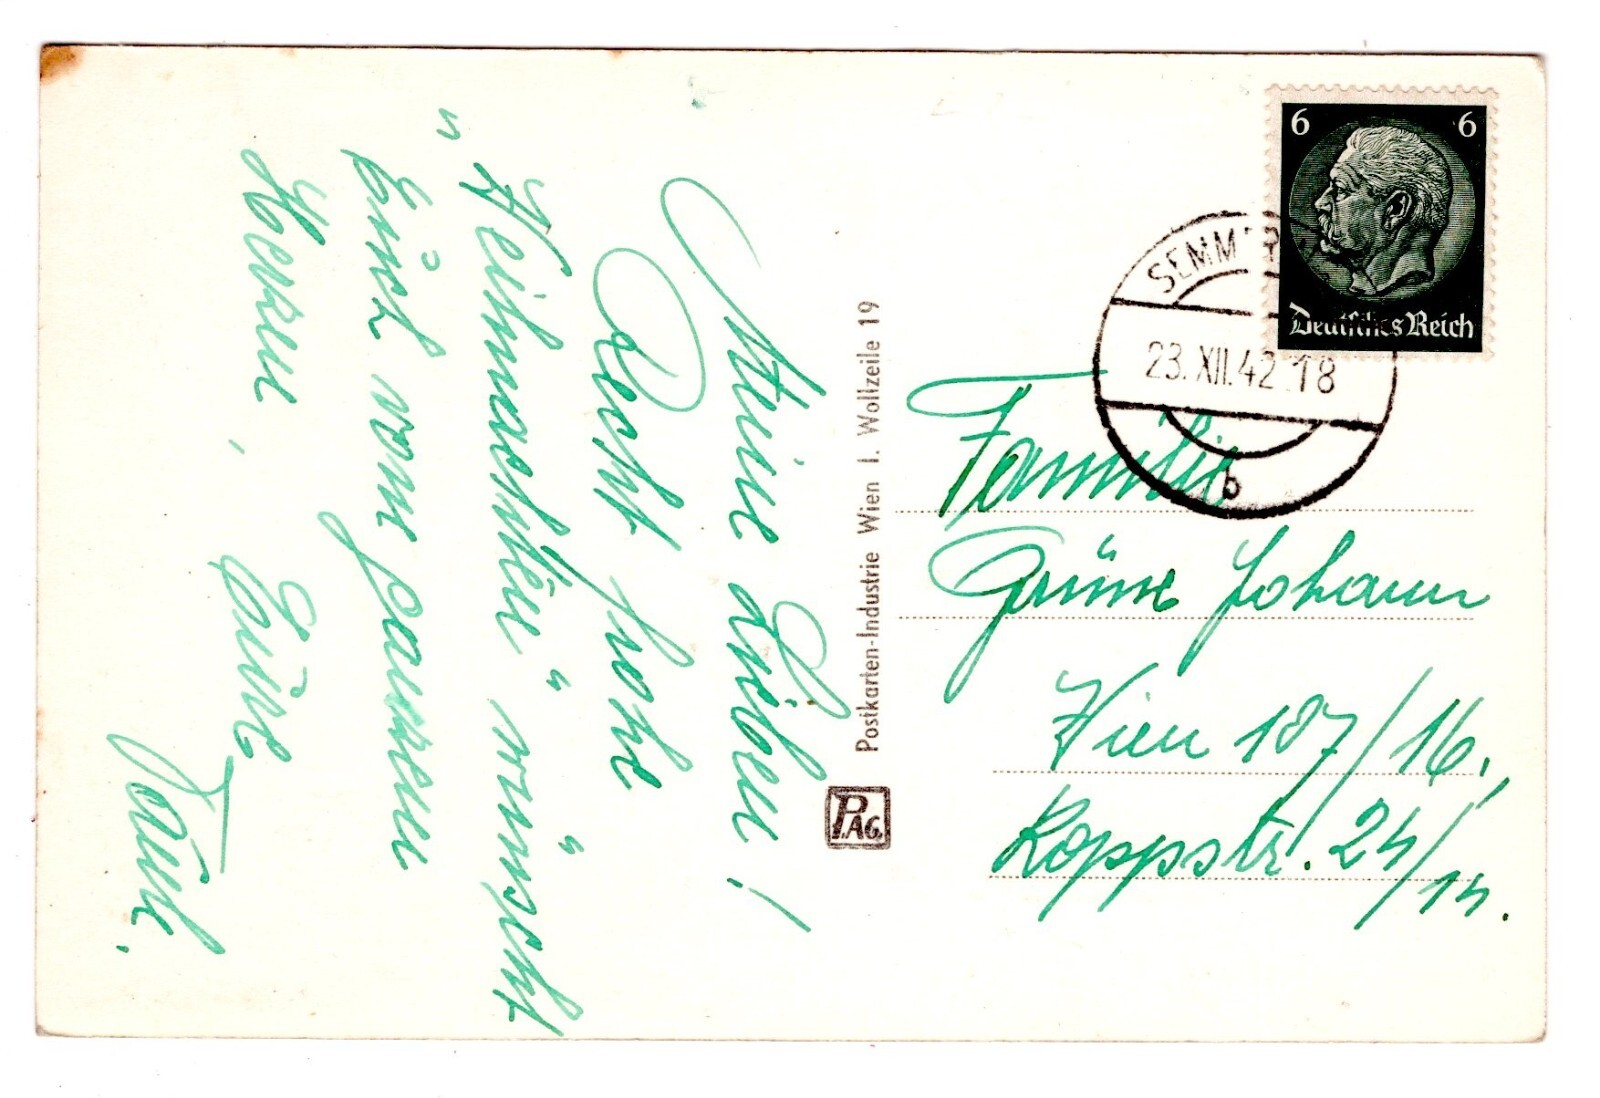 Meine Lieben!
Recht frohe
"Weihnachten" wünscht
Euch vom ganzen
Herzen, Eure
Postkarten-Industrie Wien I. Wollzeile 19
PAG.
6 6
Deutsches Reich
SEMMER
23.XII.42.18
b
Familie
Grüne Johann
Wien 107/16.,
Koppstr. 24/14.